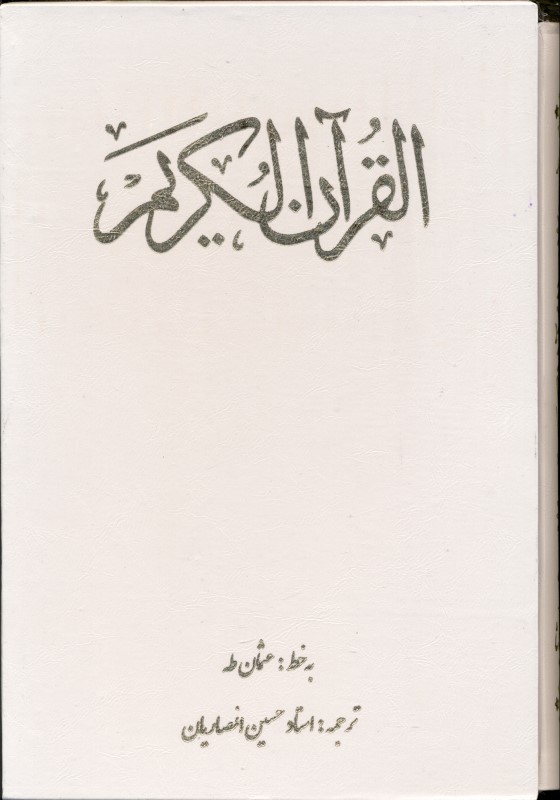 القرآن الكريم
به خط: عثمان طه
ترجمه: استاد حسین انصاریان